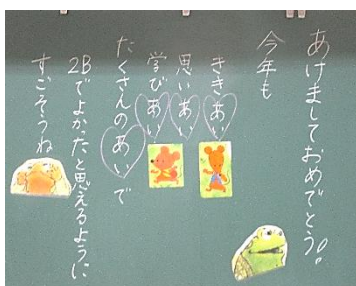 あけましておめでとう!!
今年も
ききあい
思いあい
学びあい
たくさんのあいで
2Bでよかったと思えるように
すごそうね